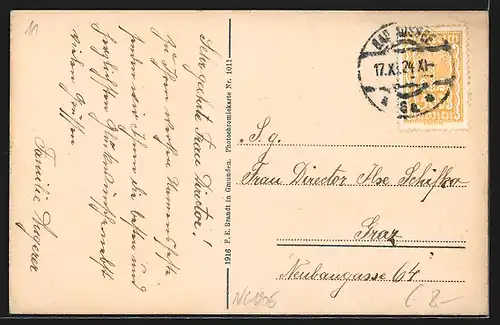 11
Sehr geehrte Frau Director!
Zu Ihrem werten Namensfeste
senden wir Ihnen die besten und
herzlichsten Glückwünsche nebst
vielen Grüssen
Familie
1916 F. E. Brandt in Gmunden. Photochromiekarte Nr. 1011
BAD AUSSEE
17.XI.24.XI
* 6a *
S. g.
Frau Director Ilse Schifko
Graz
Neubaugasse 64